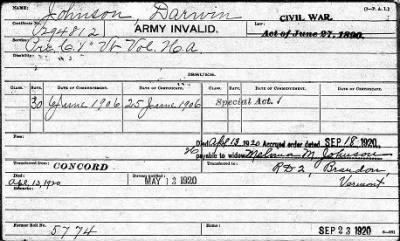 NAME: Johnson Darwin (3-P. A. I.)
CERTIFICATE No. 1294812 ARMY INVALID. CIVIL WAR. Act of June 27, 1890.
Pvt. C. 1" Vt Vol. H.A.
SERVICE:
CLASS. RATE. DATE OF COMMENCEMENT. DATE OF CERTIFICATE. CLASS. RATE. DATE OF COMMENCEMENT. DATE OF CERTIFICATE.
30 6 June 1906 25 June 1906 Special Act.
Fees: Died Apl 13, 1920 Accrued order dated SEP 18 1920,
payable to widow M. Johnson
Transferred from: CONCORD RD 2, Brandon
Died: Apl. 13, 1920 Bureau notified: MAY 13 1920 Vermont
Transferred to:
Former Roll No. 5774 Home: SEP 23 1920